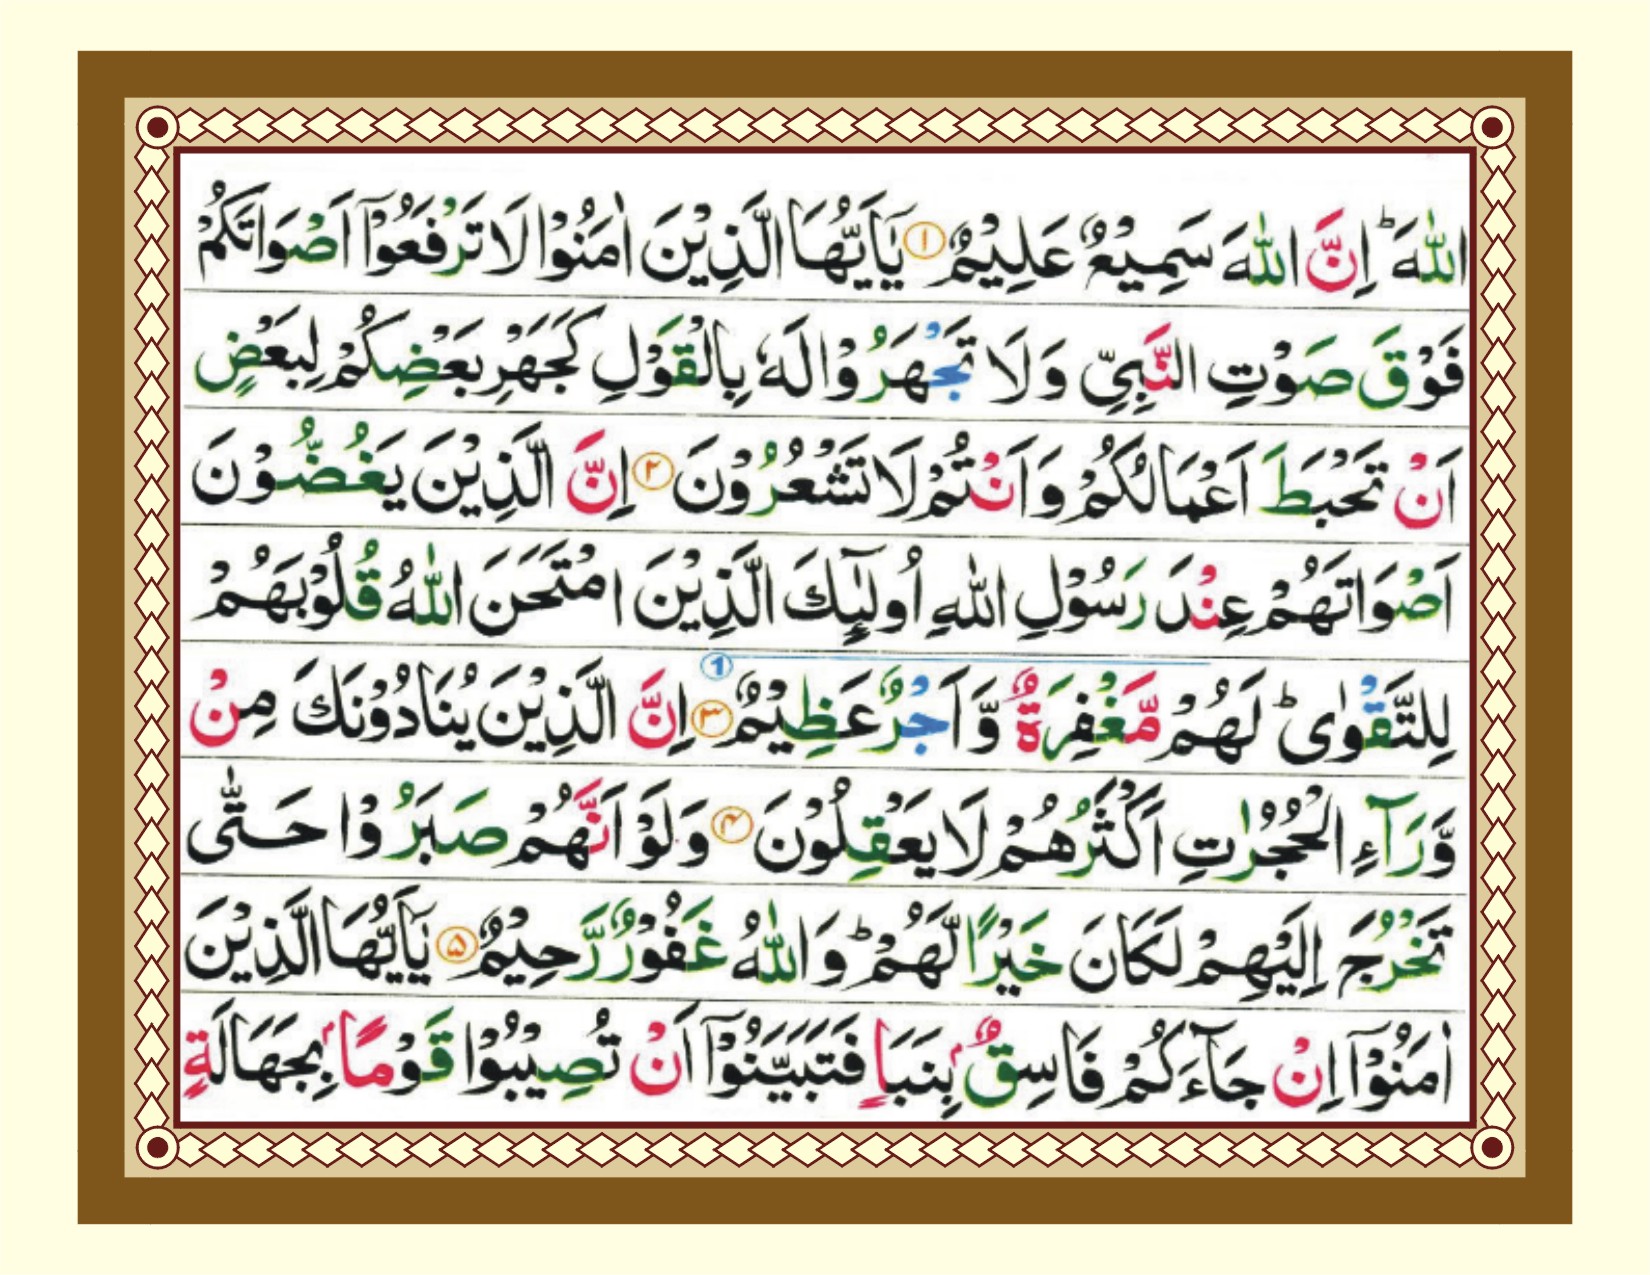 اللّٰهَ ؕ اِنَّ اللّٰهَ سَمِيْعٌ عَلِيْمٌ ۝۱ يٰۤاَيُّهَا الَّذِيْنَ اٰمَنُوْا لَا تَرْفَعُوْۤا اَصْوَاتَكُمْ
فَوْقَ صَوْتِ النَّبِيِّ وَلَا تَجْهَرُوْا لَهٗ بِالْقَوْلِ كَجَهْرِ بَعْضِكُمْ لِبَعْضٍ
اَنْ تَحْبَطَ اَعْمَالُكُمْ وَاَنْتُمْ لَا تَشْعُرُوْنَ ۝۲ اِنَّ الَّذِيْنَ يَغُضُّوْنَ
اَصْوَاتَهُمْ عِنْدَ رَسُوْلِ اللّٰهِ اُولٰٓئِكَ الَّذِيْنَ امْتَحَنَ اللّٰهُ قُلُوْبَهُمْ
لِلتَّقْوٰى ؕ لَهُمْ مَّغْفِرَةٌ وَّاَجْرٌ عَظِيْمٌ ۝۳ اِنَّ الَّذِيْنَ يُنَادُوْنَكَ مِنْ
وَّرَآءِ الْحُجُرٰتِ اَكْثَرُهُمْ لَا يَعْقِلُوْنَ ۝۴ وَلَوْ اَنَّهُمْ صَبَرُوْا حَتّٰى
تَخْرُجَ اِلَيْهِمْ لَكَانَ خَيْرًا لَّهُمْ ؕ وَاللّٰهُ غَفُوْرٌ رَّحِيْمٌ ۝۵ يٰۤاَيُّهَا الَّذِيْنَ
اٰمَنُوْۤا اِنْ جَآءَكُمْ فَاسِقٌۢ بِنَبَاٍ فَتَبَيَّنُوْۤا اَنْ تُصِيْبُوْا قَوْمًۢا بِجَهَالَةٍ